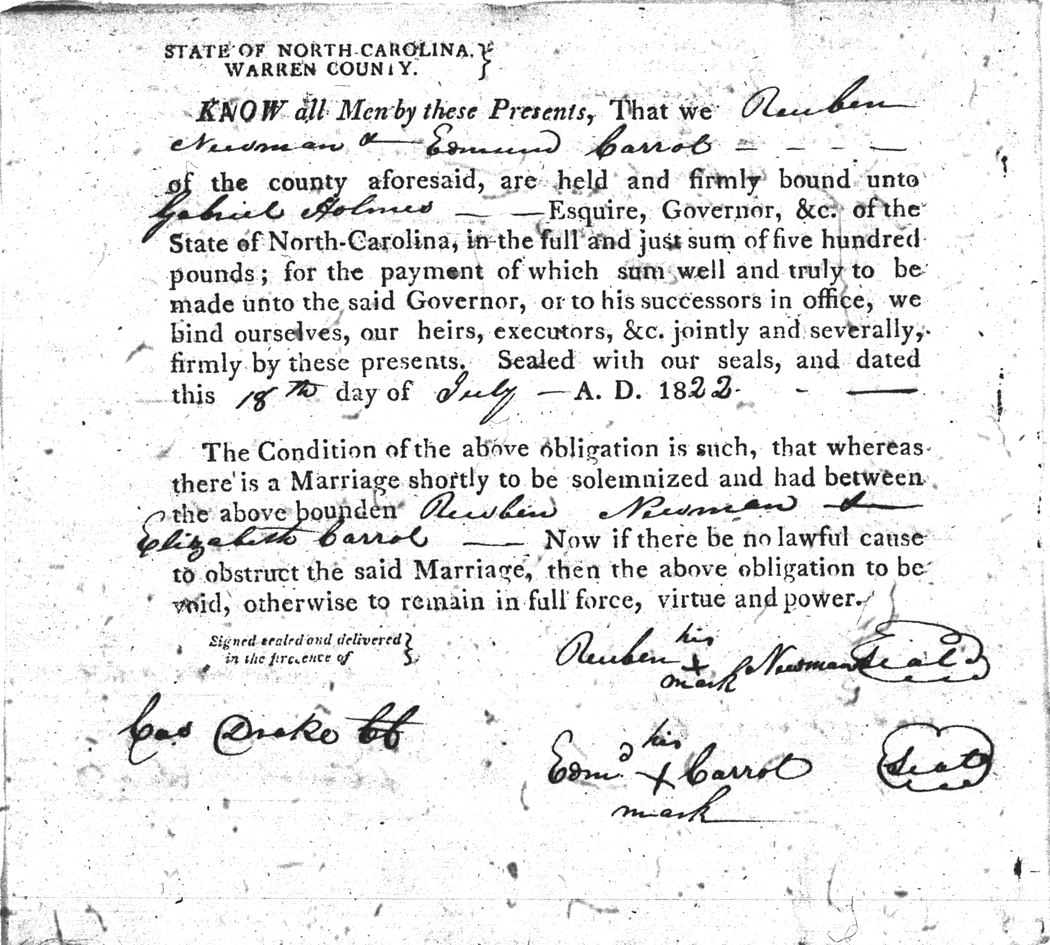 STATE OF NORTH-CAROLINA. }
WARREN COUNTY. }
KNOW all Men by these Presents, That we Reuben
Newman & Edmund Carrol
of the county aforesaid, are held and firmly bound unto
Gabriel Holmes — — Esquire, Governor, &c. of the
State of North-Carolina, in the full and just sum of five hundred
pounds; for the payment of which sum well and truly to be
made unto the said Governor, or to his successors in office, we
bind ourselves, our heirs, executors, &c. jointly and severally,
firmly by these presents. Sealed with our seals, and dated
this 18th day of July — A. D. 1822.
The Condition of the above obligation is such, that whereas
there is a Marriage shortly to be solemnized and had between
the above bounden Reuben Newman &
Elizabeth Carrol — Now if there be no lawful cause
to obstruct the said Marriage, then the above obligation to be
void, otherwise to remain in full force, virtue and power.
Signed sealed and delivered }
in the presence of }
his
Reuben X Newman Seal
mark
Cas Drake CC
his
Edmd X Carrol Seal
mark